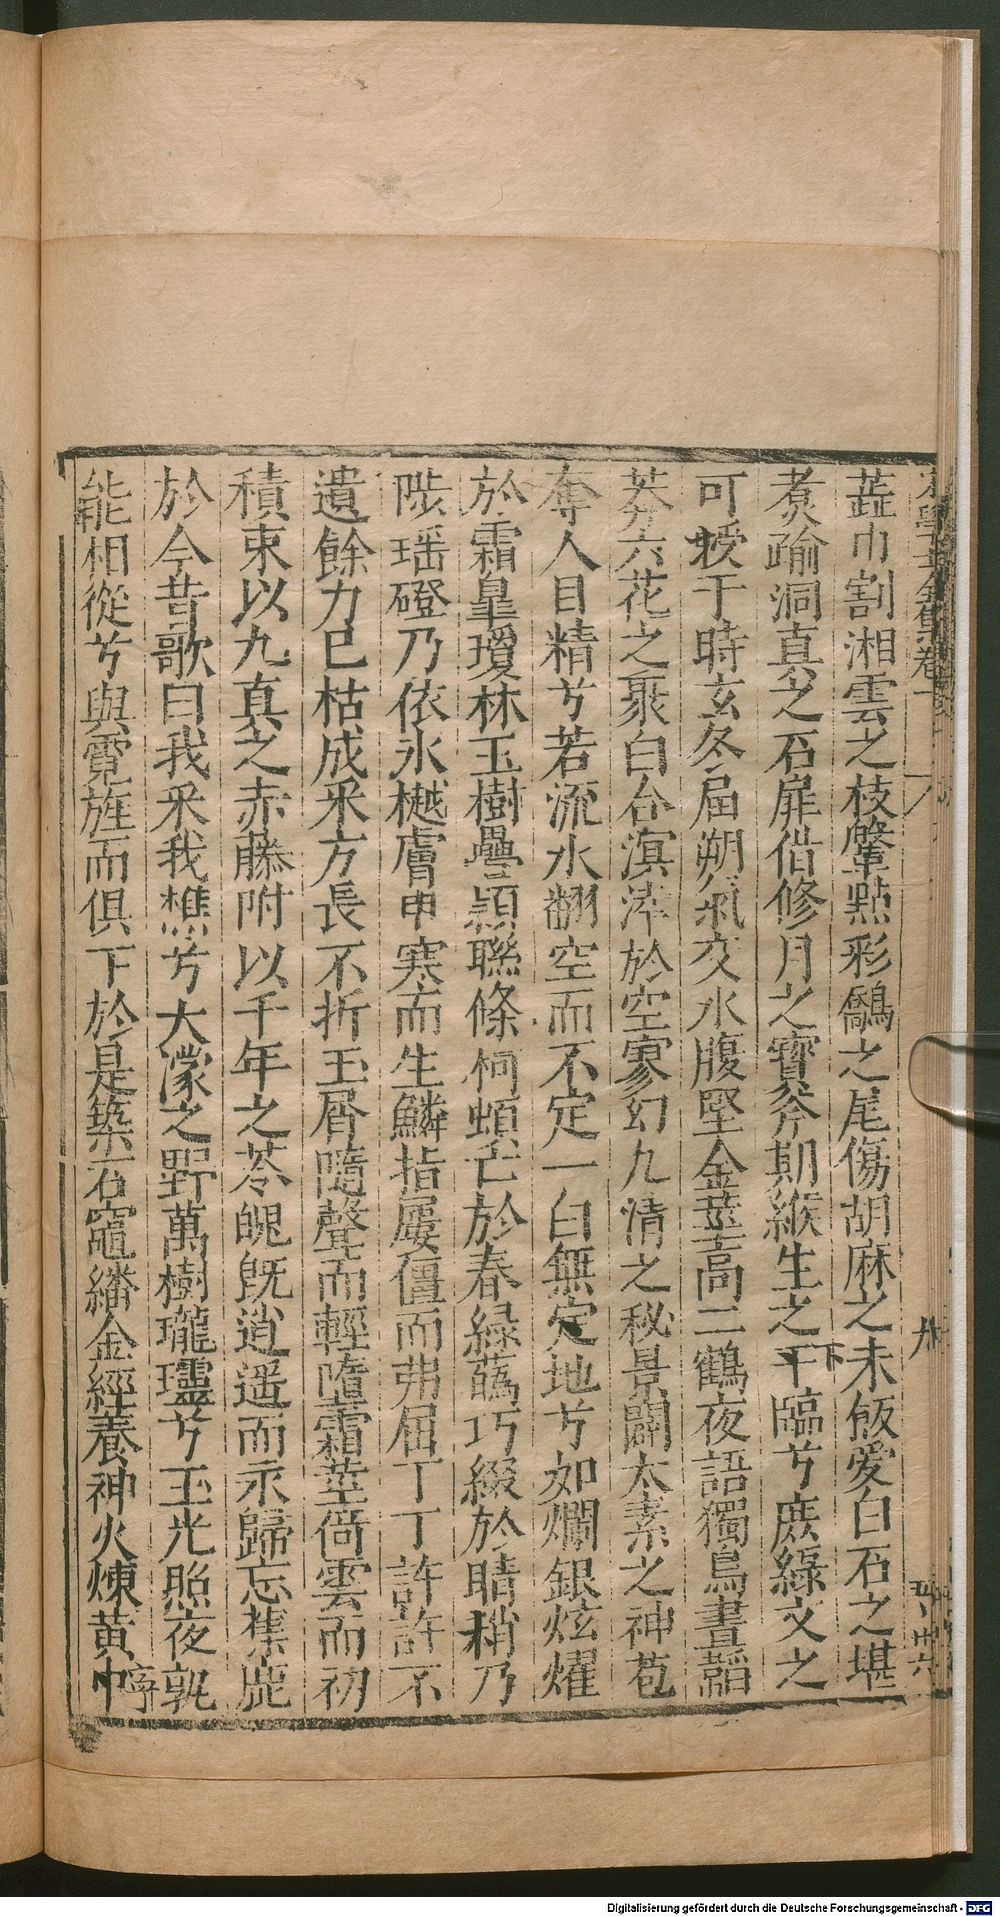 蕋巾割湘雲之枝肇點彩鷸之尾傷胡麻之未飯愛白石之堪
煮踰洞真之石扉借修月之寶斧期緱生之下臨兮庶綠文之
可授于時玄冬屆朔氣交水腹堅金莖高二鶴夜語獨鳥晝韜
芬六花之聚白合溟涬於空寥幻九清之秘景闢太素之神苞
奪人目精兮若流水翻空而不定一白無定地兮如爛銀炫燿
於霜臯瓊林玉樹疊穎聯條柯蝡亡於春綠蘤巧綴於晴稍乃
陟瑶磴乃依氷樾膚申寒而生鱗指屢僵而弗屈丁丁許許不
遺餘力已枯成采方長不折玉屑隨聲而輕墮霜莖倚雲而初
積束以九真之赤藤附以千年之苓䰟既逍遥而永歸忘蕉鹿
於今昔歌曰我采我樵兮大濛之野萬樹瓏瓏兮玉光照夜孰
能相從兮與霓旌而俱下於是築石竈繙金經養神火煉黄中